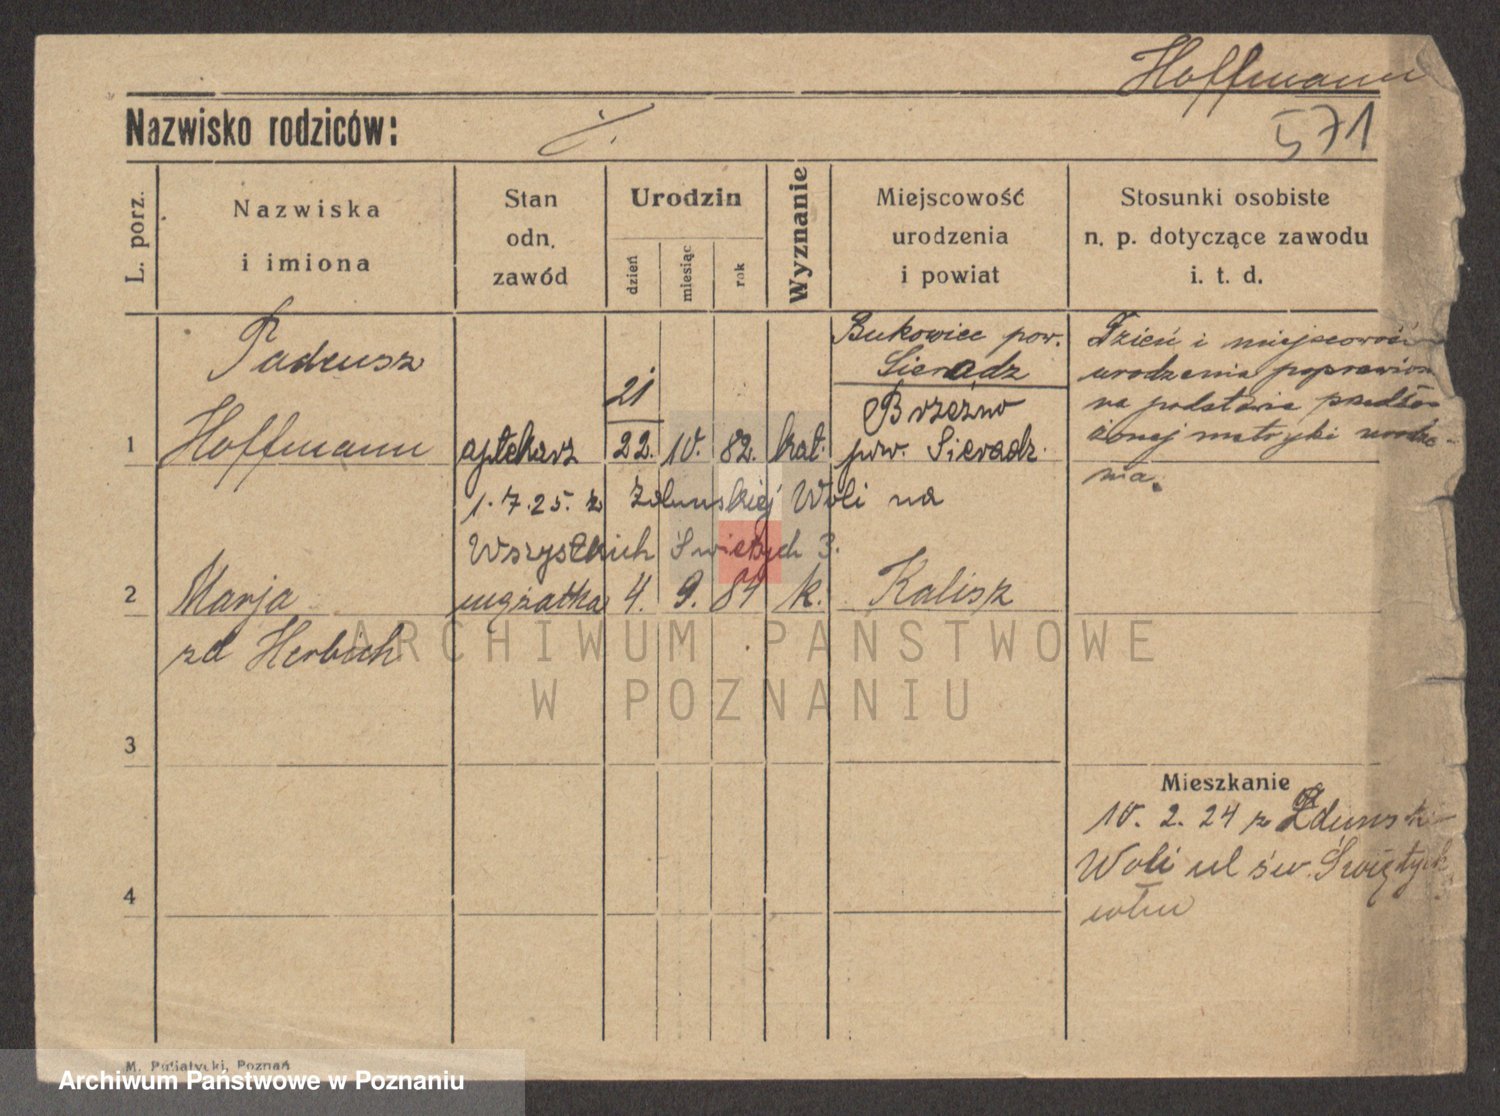 Hoffmann
571
Nazwisko rodziców:
L. porz.
Nazwiska
i imiona
Stan
odn.
zawód
Urodzin
dzień
miesiąc
rok
Wyznanie
Miejscowość
urodzenia
i powiat
Stosunki osobiste
n. p. dotyczące zawodu
i. t. d.
1
Tadeusz
Hoffmann
aptekarz
21
22. 10. 82. kat.
Bukowiec pow.
Sieradz
Brzeźno
pow. Sieradz.
Dzień i miejscowość
urodzenia
na podstawie
metryki
nia.
1.7.25. z Zdunskiej Woli na
Wszystkich Świetych 3.
2
Marja
zd Herbich
mężatka 4. 9. 84 k. Kalisz
3
Mieszkanie
10. 2. 24 z Zdunski
Woli ul św.
4
ARCHIWUM PAŃSTWOWE
W POZNANIU
M. Putiatycki, Poznań
Archiwum Państwowe w Poznaniu